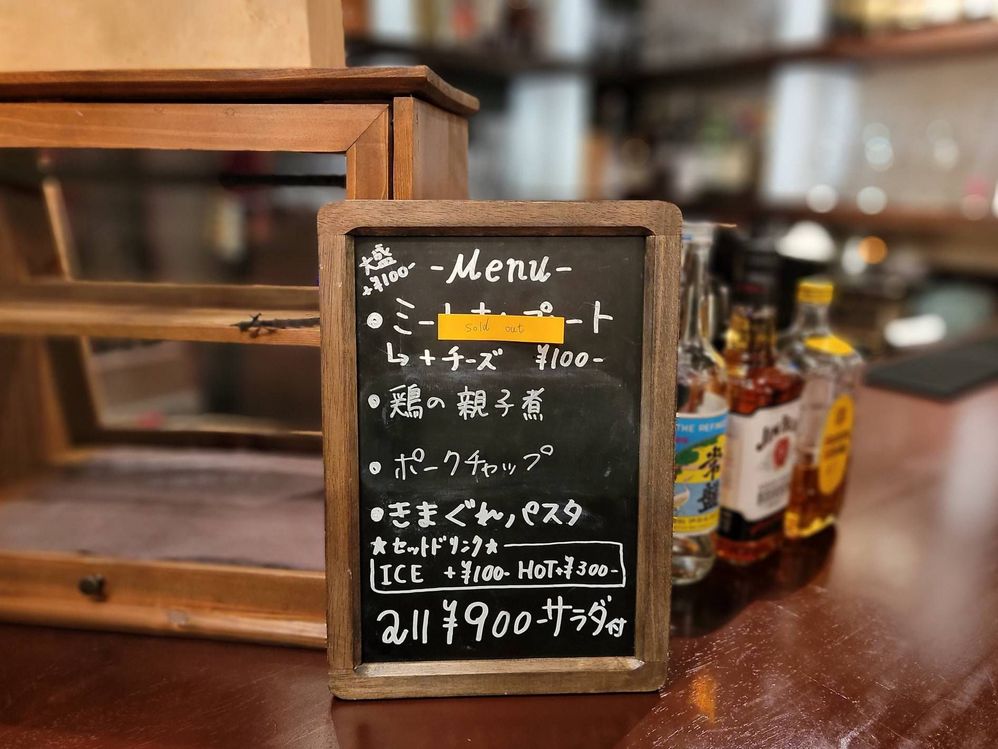 大盛
+¥100-
-Menu-
・ミートプレート
sold out
↳ +チーズ ¥100-
・鶏の親子煮
・ポークチャップ
・きまぐれパスタ
★セットドリンク★
ICE +¥100- HOT+¥300-
all ¥900-サラダ付
THE REFINED
常盤
JIM BEAM